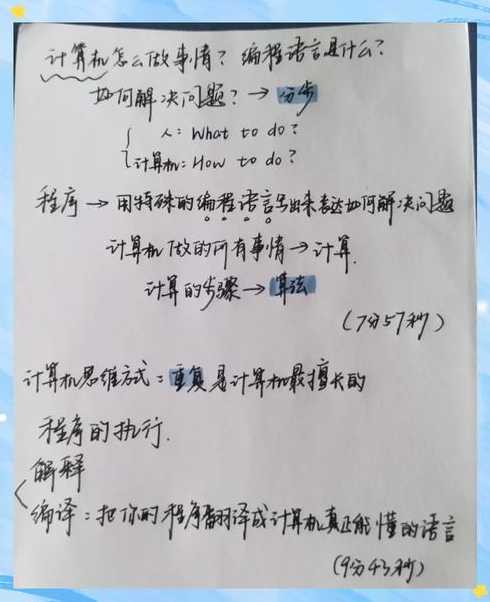 计算机怎么做事情？编程语言是什么？
如何解决问题？→分步
人：What to do？
计算机：How to do？
程序→用特殊的编程语言写出来表达如何解决问题
计算机做的所有事情→计算.
计算的步骤→算法
(7分57秒)
计算机思维方式：重复是计算机最擅长的
程序的执行.
解释
编译：把你的程序翻译成计算机真正能懂的语言
(9分43秒)